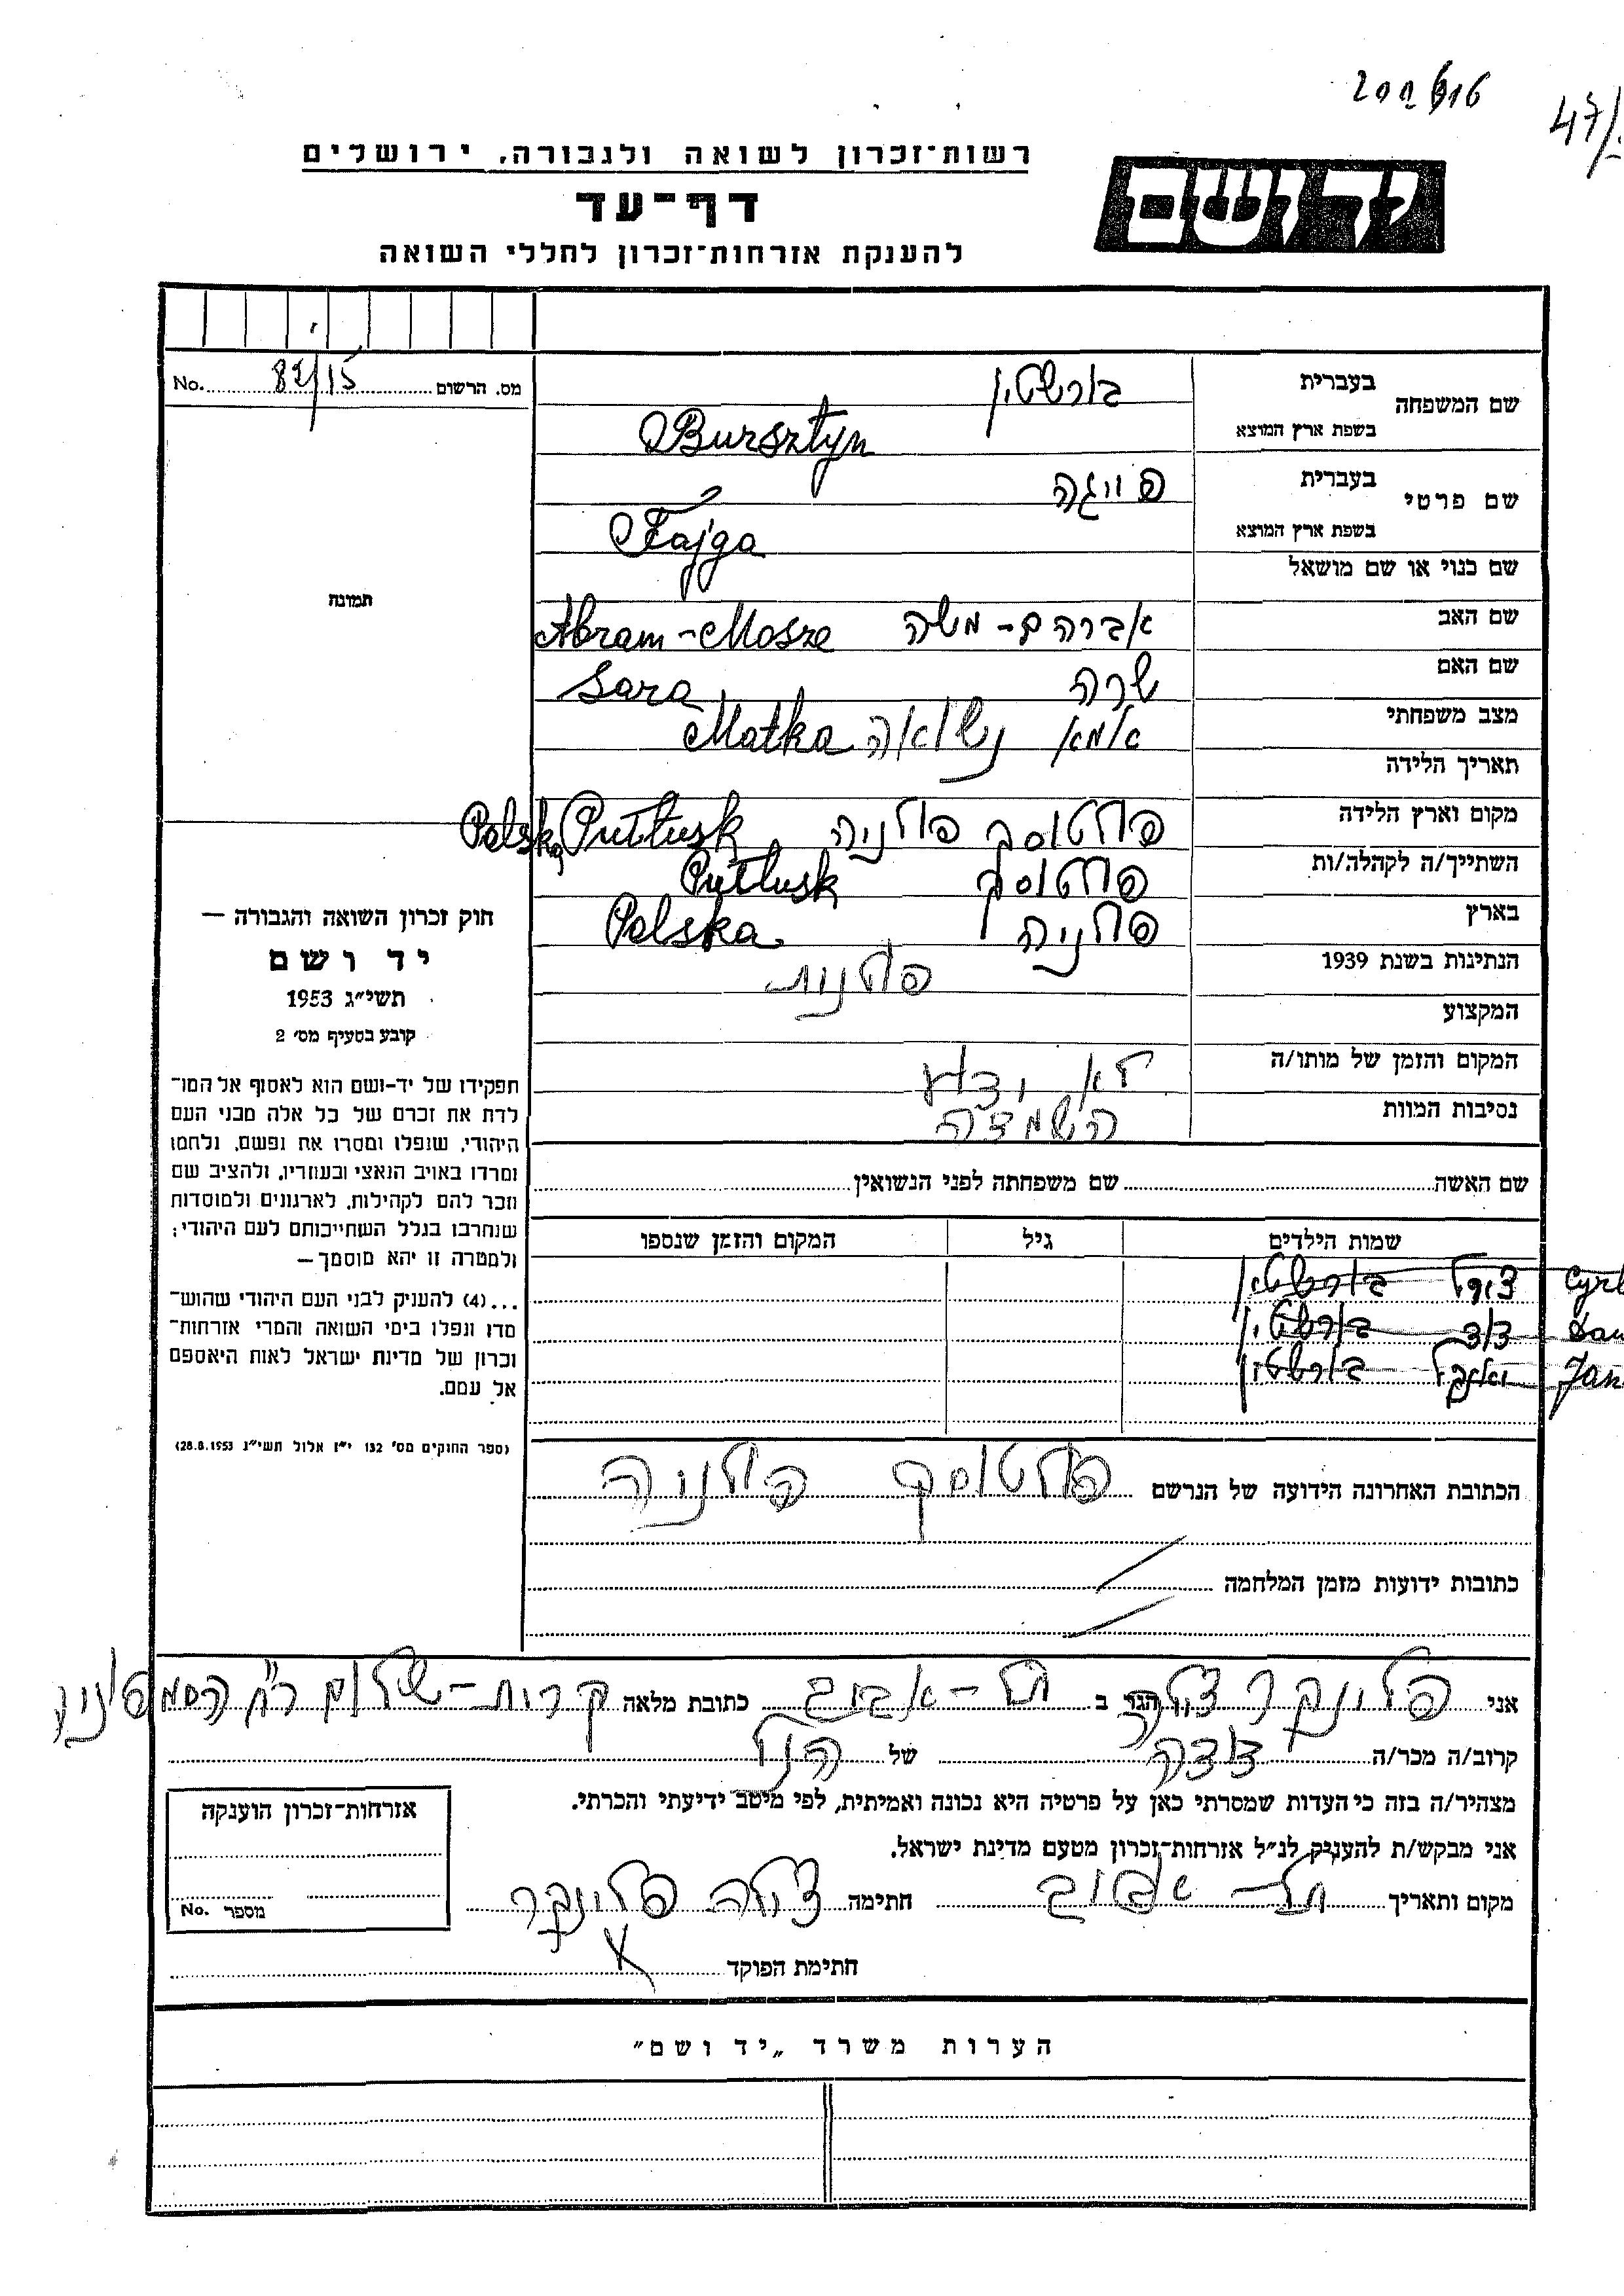 47/
רשות־זכרון לשואה ולגבורה, ירושלים
דף־עד
להענקת אזרחות־זכרון לחללי השואה
יד ושם
No. 82/15 מס. הרשום
תמונה
שם המשפחה בעברית בורשטין
בשפת ארץ המוצא Bursztyn
שם פרטי בעברית פייגה
בשפת ארץ המוצא Fajga
שם כנוי או שם מושאל
שם האב אברהם - משה Abram - Mosze
שם האם שרה Sara
מצב משפחתי אמא נשואה Matka
תאריך הלידה
מקום וארץ הלידה פולטוסק פולניה Pułtusk Polska
השתייך/ה לקהלה/ות פולטוסק Pułtusk
בארץ פולניה Polska
הנתינות בשנת 1939 פולנית
המקצוע
המקום והזמן של מותו/ה לא ידוע
נסיבות המוות השמדה
שם האשה שם משפחתה לפני הנשואין
שמות הילדים גיל המקום והזמן שנספו
צירל בורשטין Cyrl
דוד בורשטין
יאנקל בורשטין Jan
חוק זכרון השואה והגבורה —
יד ושם
תשי״ג 1953
קובע בסעיף מס׳ 2
תפקידו של יד-ושם הוא לאסוף אל המו־
לדת את זכרם של כל אלה מבני העם
היהודי, שנפלו ומסרו את נפשם, נלחמו
ומרדו באויב הנאצי ובעוזריו, ולהציב שם
וזכר להם לקהילות, לארגונים ולמוסדות
שנחרבו בגלל השתייכותם לעם היהודי;
ולמטרה זו יהא מוסמך—
...(4) להעניק לבני העם היהודי שהוש־
מדו ונפלו בימי השואה והמרי אזרחות־
זכרון של מדינת ישראל לאות היאספם
אל עמם.
(ספר החוקים מס׳ 132 י״ז אלול תשי״ג 28.8.1953)
הכתובת האחרונה הידועה של הנרשם פולטוסק פולניה
כתובות ידועות מזמן המלחמה
אני פלונקר צילה הגר ב תל-אביב כתובת מלאה קרית-שלום רח׳
קרוב/ה מכר/ה דודה של הנ״ל
מצהיר/ה בזה כי העדות שמסרתי כאן על פרטיה היא נכונה ואמיתית, לפי מיטב ידיעתי והכרתי.
אני מבקש/ת להעניק לנ״ל אזרחות־זכרון מטעם מדינת ישראל.
מקום ותאריך תל-אביב חתימה צילה פלונקר
חתימת הפוקד
אזרחות־זכרון הוענקה
No. מספר
הערות משרד „יד ושם״